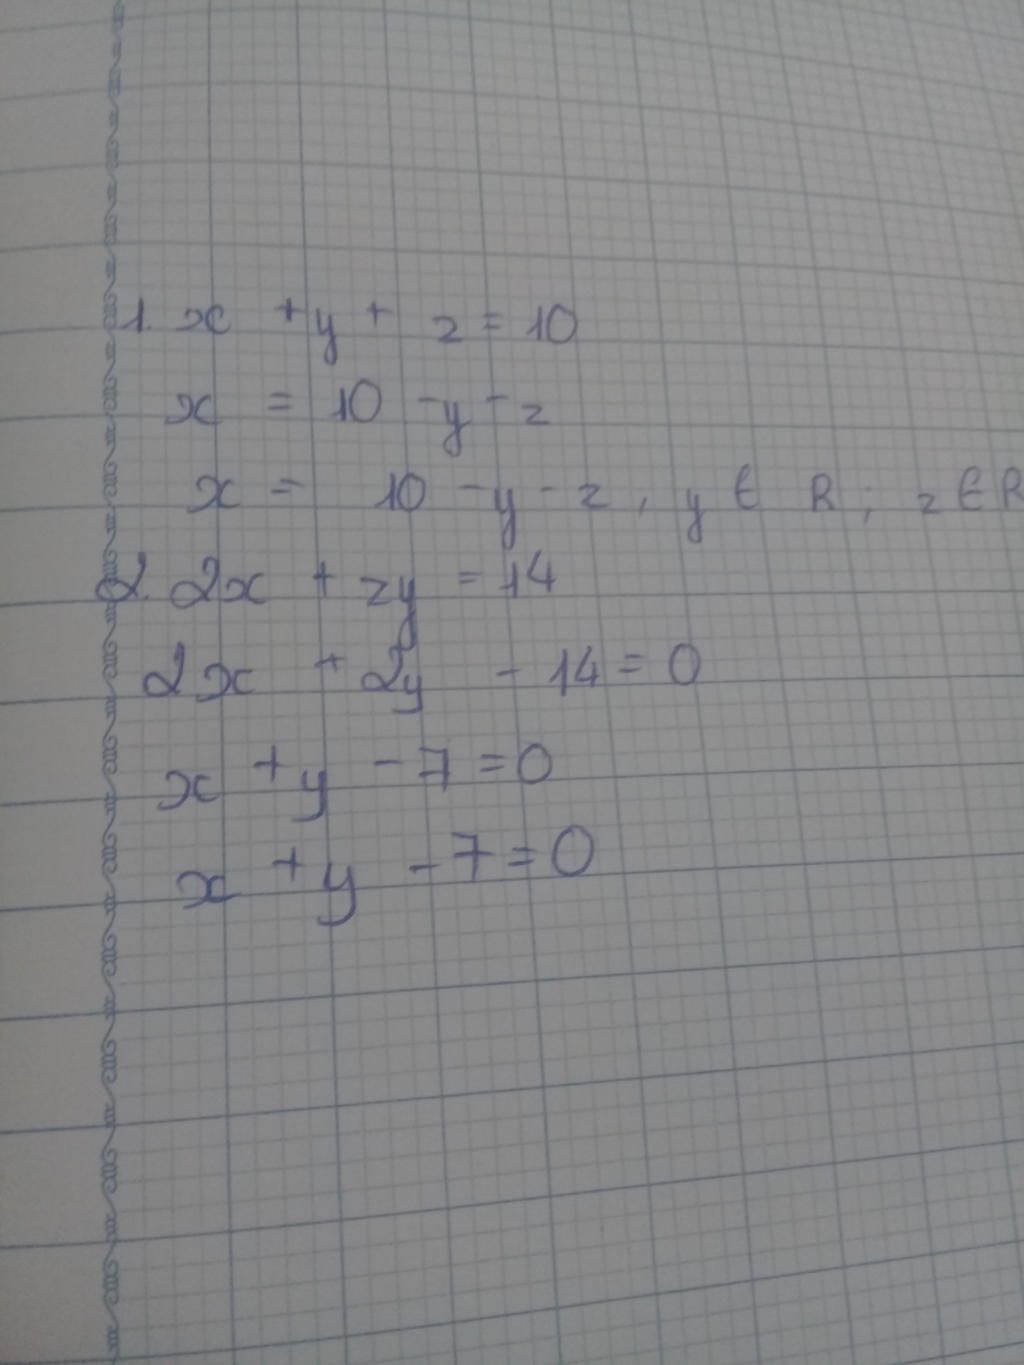 1. x + y + z = 10
x = 10 - y - z
x = 10 - y - z, y ∈ R ; z ∈ R
2. 2x + zy = 14
2x + 2y - 14 = 0
x + y - 7 = 0
x + y - 7 = 0